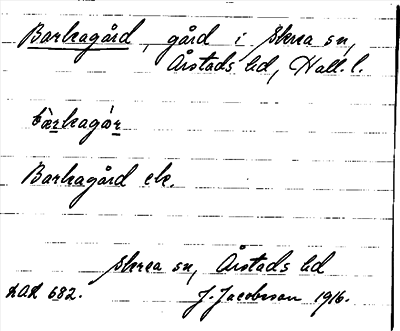 Barkagård, gård i Skrea sn,
Årstads hd, Hall. l.
bàrkagór
Barkagård ek.
Skrea sn, Årstads hd
LAL 682. J. Jacobsson 1916.